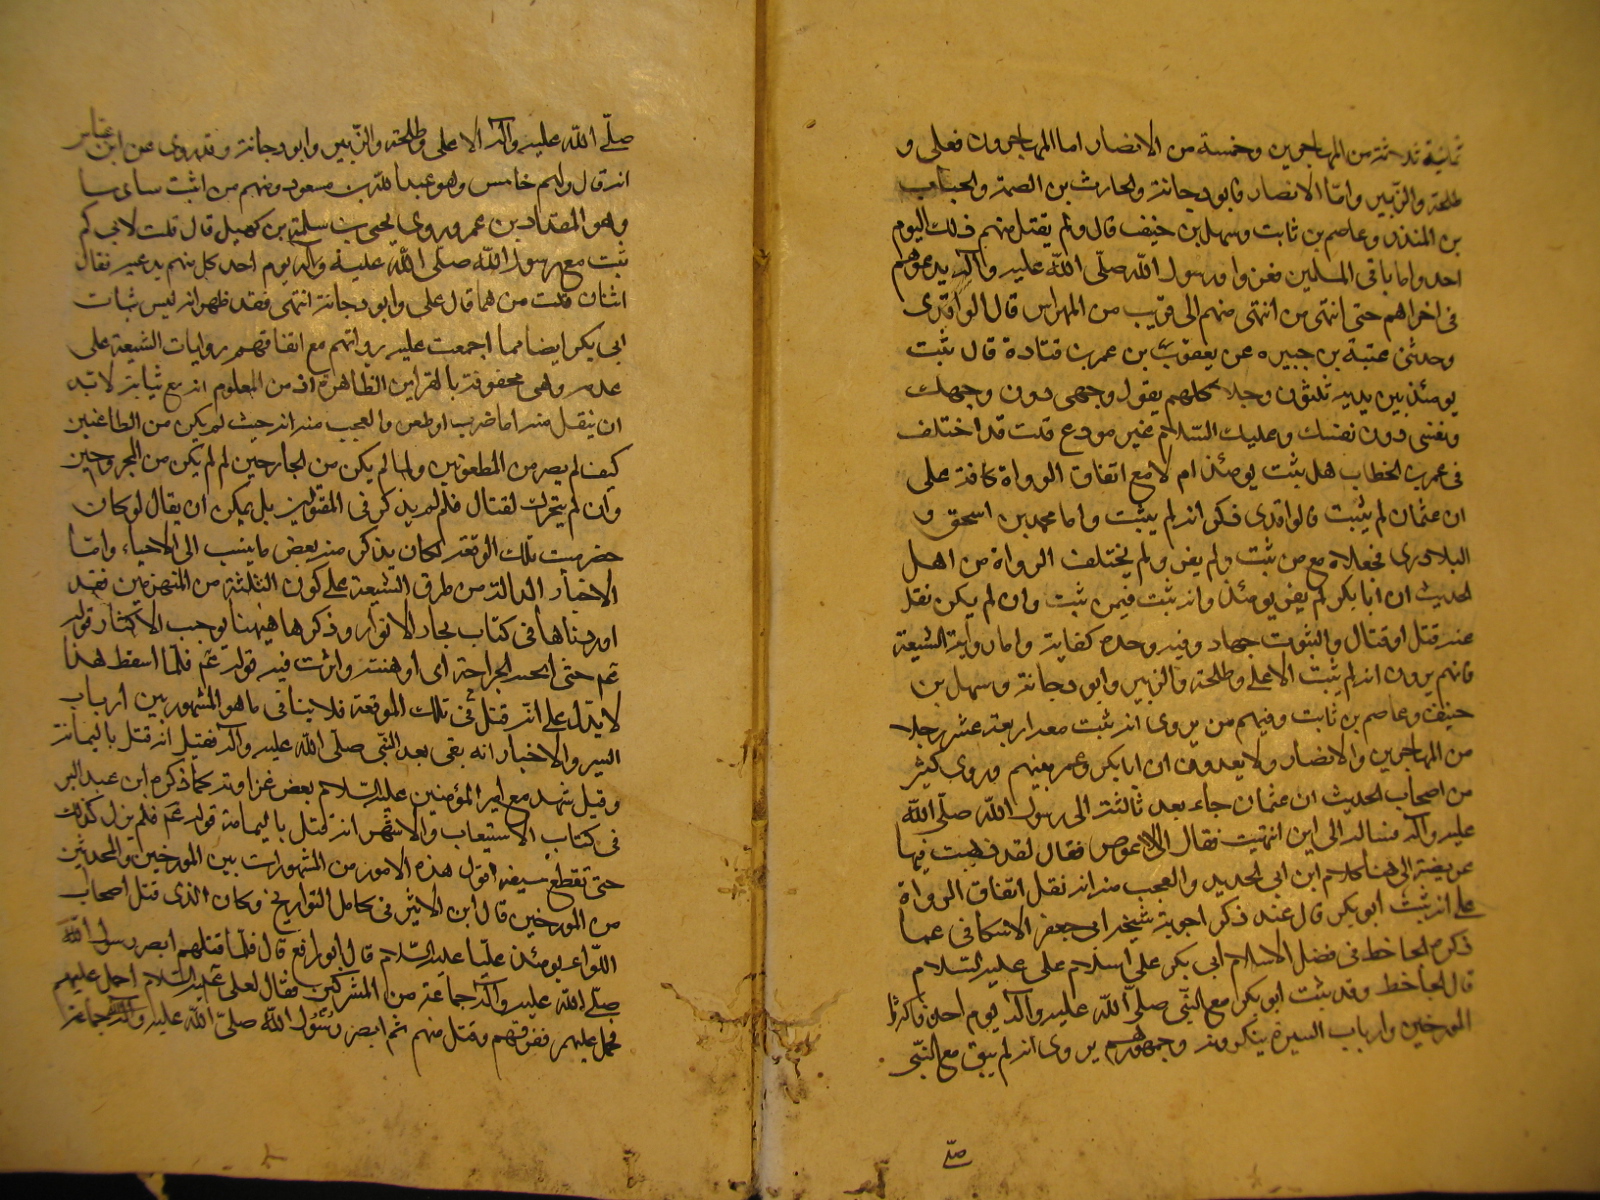 ثمانية ثلاثة من المهاجرين وخمسة من الانصار اما المهاجرون فعلى و
طلحة والزبير وامّا الانصار فابو دجانة والحارث بن الصمة والحباب
بن المنذر وعاصم بن ثابت وسهل بن حنيف قال ولم يقتل منهم ذلك اليوم
احد واما باقى المسلمين ففروا ورسول الله صلّى الله عليه وآله يدعوهم
فى اخراهم حتى انتهى من انتهى منهم الى قريب من المهراس قال الواقدى
وحدثنى عتبة بن جبيره عن يعقوب بن عمر بن قتادة قال ثبت
يومئذ بين يديه ثلثون رجلا كلهم يقول وجهى دون وجهك
ونفسى دون نفسك وعليك السّلام غير مودع قلت قد اختلف
فى عمر بن الخطاب هل ثبت يومئذ ام لا مع اتفاق الرواة كافة على
ان عثمان لم يثبت فالواقدى ذكر انه لم يثبت واما محمد بن اسحق و
البلاذرى فجعلاه مع من ثبت ولم يفر ولم يختلف الرواة من اهل
الحديث ان ابا بكر لم يفر يومئذ وانه ثبت فيمن ثبت وان لم يكن نقل
عنه قتل او قتال والثبوت جهاد وفيه وحده كفاية واما رواية الشيعة
فانهم يروون انه لم يثبت الا على وطلحة والزبير وابو دجانة وسهل بن
حنيف وعاصم بن ثابت وفيهم من يروى انه ثبت معه اربعة عشر رجلا
من المهاجرين والانصار ولا يعدون ابا بكر وعمر بينهم وروى كثير
من اصحاب الحديث ان عثمان جاء بعد ثالثة الى رسول الله صلّى الله
عليه وآله فساله الى اين انتهيت فقال الى الاعوص فقال لقد ذهبت فيها
عريضة الى هنا كلام ابن ابى الحديد والعجب منه انه نقل اتفاق الرواة
على انه ثبت ابو بكر قال عند ذكر اجوبة شيخه ابى جعفر الاسكافى عما
ذكره الجاحظ فى فضل الاسلام ابى بكر على اسلام على عليه السّلام
قال الجاحظ وقد ثبت ابو بكر مع النّبى صلّى الله عليه وآله يوم احد فاكثر
المورخين وارباب السيرة ينكرونه وجمهورهم يروى انه لم يبق مع النّبى
صلّى
صلّى الله عليه وآله الا على وطلحة والزّبير وابو دجانة وقد روى عن ابن عباس
انه قال ولهم خامس وهو عبد الله بن مسعود ومنهم من اثبت سادسا
وهو المقداد بن عمرو وروى يحيى بن سلمة بن كهيل قال قلت لابى كم
ثبت مع رسول الله صلّى الله عليه وآله يوم احد كل منهم يدعيه فقال
اثنان قلت من هما قال على وابو دجانة انتهى فقد ظهر انه ليس ثبات
ابى بكر ايضا مما اجمعت عليه رواتهم مع اتفاقهم روايات الشيعة على
عدمه وهى محفوفة بالقراين الظاهرة اذ من المعلوم انه مع ثباته لا بد
ان ينقل منه اما ضرب او طعن والعجب منه انه حيث لم يكن من الطاعنين
كيف لم يصر من المطعونين ولما لم يكن من الجارحين لم لم يكن من المجروحين
وان لم يتحرك لقتال فلم لم يذكر فى المقتولين بل يمكن ان يقال لو كان
حضر ميت تلك الوقعة لكان يذكر منه بعض ما ينسب الى الاحياء وامّا
الاخبار الدالة من طرق الشيعة على كون الثلثة من المنهزمين فقد
اوردناها فى كتاب بحار الانوار وذكرها هيهنا يوجب الاكثار قوله
عم حتى الجراحة اى اوهنته واثرت فيه قوله عم فلمّا اسقط هذا
لا يدل على انّه قتل فى تلك الوقعة فلا ينافى ما هو المشهور بين ارباب
السير والاخبار انه بقى بعد النّبى صلّى الله عليه وآله فقيل انه قتل باليمامة
وقيل شهد مع امير المؤمنين عليه السّلام بعض غزاوته كما ذكره ابن عبد البر
فى كتاب الاستيعاب والاشهر انه قتل باليمامة قوله عم فلم يزل كذلك
حتى تقطع سيفه اقول هذه الامور من المشهورات بين المورخين والمحدثين
من المورخين قال ابن الاثير فى كامل التواريخ وكان الذى قتل اصحاب
اللواء يومئذ عليّا عليه السّلام قال ابو رافع قال فلمّا قتلهم ابصر رسول الله
صلّى الله عليه وآله جماعة من المشركين فقال لعلى عليه السلام احمل عليهم
فحمل عليهم ففرقهم وقتل منهم ثم ابصر رسول الله صلّى الله عليه وآله جماعة